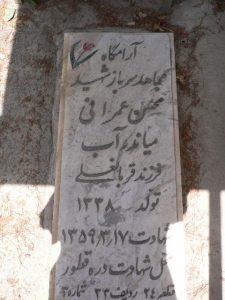 آرامگاه
مجاهد سرباز شهید
محسن عمرانی
میاندرآب
فرزند قربانعلی
تولد ۱۳۳۸
شهادت ۱۳۵۹/۳/۱۷
محل شهادت دره قطور
قطعه ۲۴ ردیف ۲۳ شماره